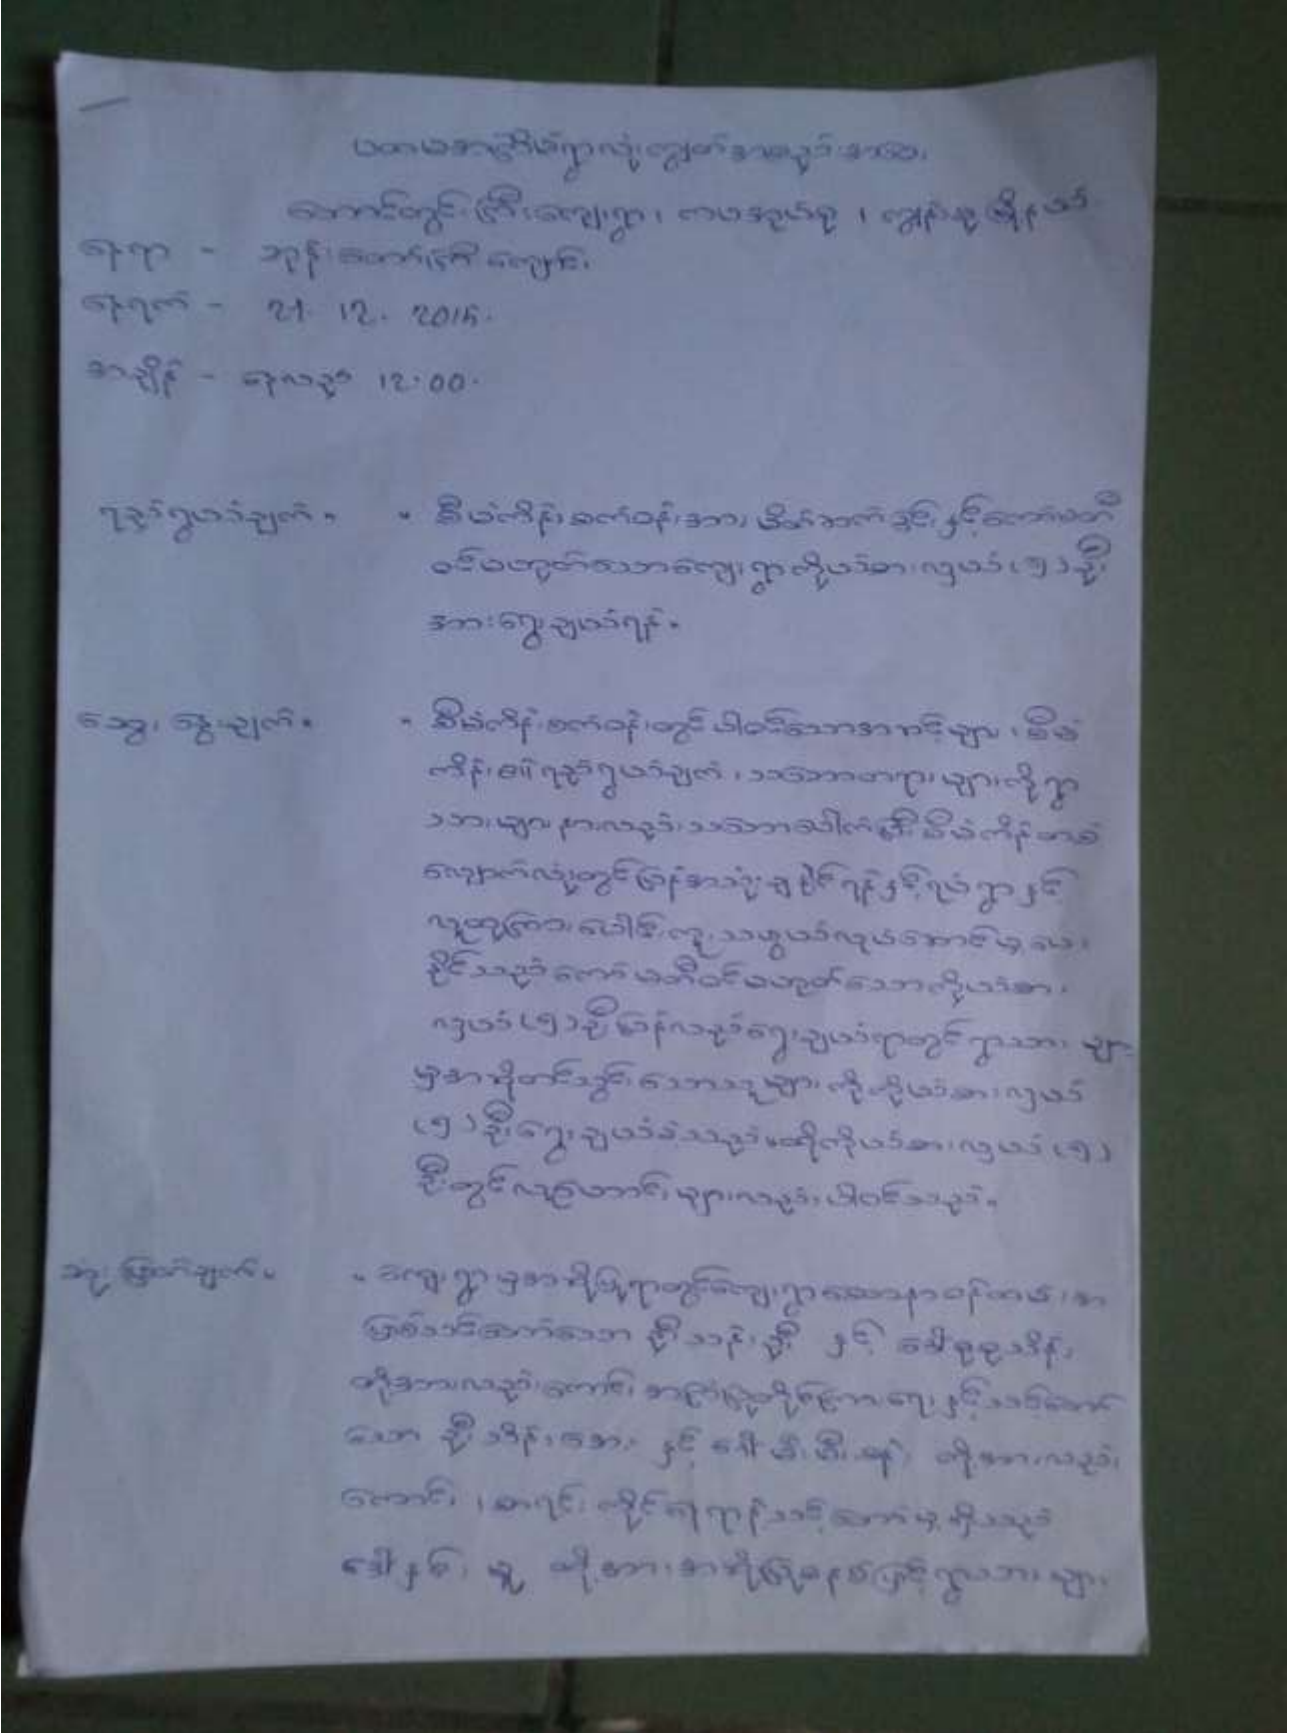 ပထမအကြိမ်ရွာလုံးကျွတ်အစည်းအဝေး
တောင်တွင်းကြီးကျေးရွာ၊ ကျွန်းစုမြို့နယ်
နေရာ - ဘုန်းတော်ကြီးကျောင်း
နေ့ရက် - 21. 12. 2015.
အချိန် - နေ့လည် 12:00.
ရည်ရွယ်ချက်။ ။ စီမံကိန်းစက်ဝန်းအား မိတ်ဆက်ခြင်းနှင့်ကော်မတီ
ဝင်မဟုတ်သောကျေးရွာကိုယ်စားလှယ် (၅) ဦး
အားရွေးချယ်ရန်။
ဆွေးနွေးချက်။ ။ စီမံကိန်းစက်ဝန်းတွင်ပါဝင်သောအဆင့်များ၊ စီမံ
ကိန်း၏ရည်ရွယ်ချက်၊ သဘောတရားများကိုရွာ
သားများနားလည်သဘောပေါက်ပြီးစီမံကိန်းတစ်
လျှောက်လုံးတွင်ပြန်အသုံးချနိုင်ရန်နှင့်ရပ်ရွာနှင့်
လူထုကြားပေါင်းကူးသဖွယ်လုပ်ဆောင်မှုပေး
နိုင်သည့်ကော်မတီဝင်မဟုတ်သောကိုယ်စား
လှယ် (၅) ဦးပြန်လည်ရွေးချယ်ရာတွင်ရွာသားများ
မှအဆိုတင်သွင်းသောသူများကိုကိုယ်စားလှယ်
(၅) ဦးရွေးချယ်ခဲ့သည်။ ထိုကိုယ်စားလှယ် (၅)
ဦးတွင်လူဟောင်းများလည်းပါဝင်သည်။
ဆုံးဖြတ်ချက်။ ။ ကျေးရွာမှအဆိုပြုရာတွင်ကျေးရွာစေတနာ့ဝန်ထမ်းအ
ဖြစ်သင့်တော်သော ဦးသန်းဦး နှင့် ဒေါ်စုစုသိန်း
တို့အားလည်းကောင်း၊ အကြံပြုတိုင်ကြားရေးနှင့်သင့်တော်
သော ဦးသိန်းအေး နှင့် တို့အားလည်း
ကောင်း၊ စာရင်းကိုင်နေရာနှင့်သင့်တော်မှုရှိသည့်
တို့အားအဆိုပြုခဲ့ရာရွာသားများ